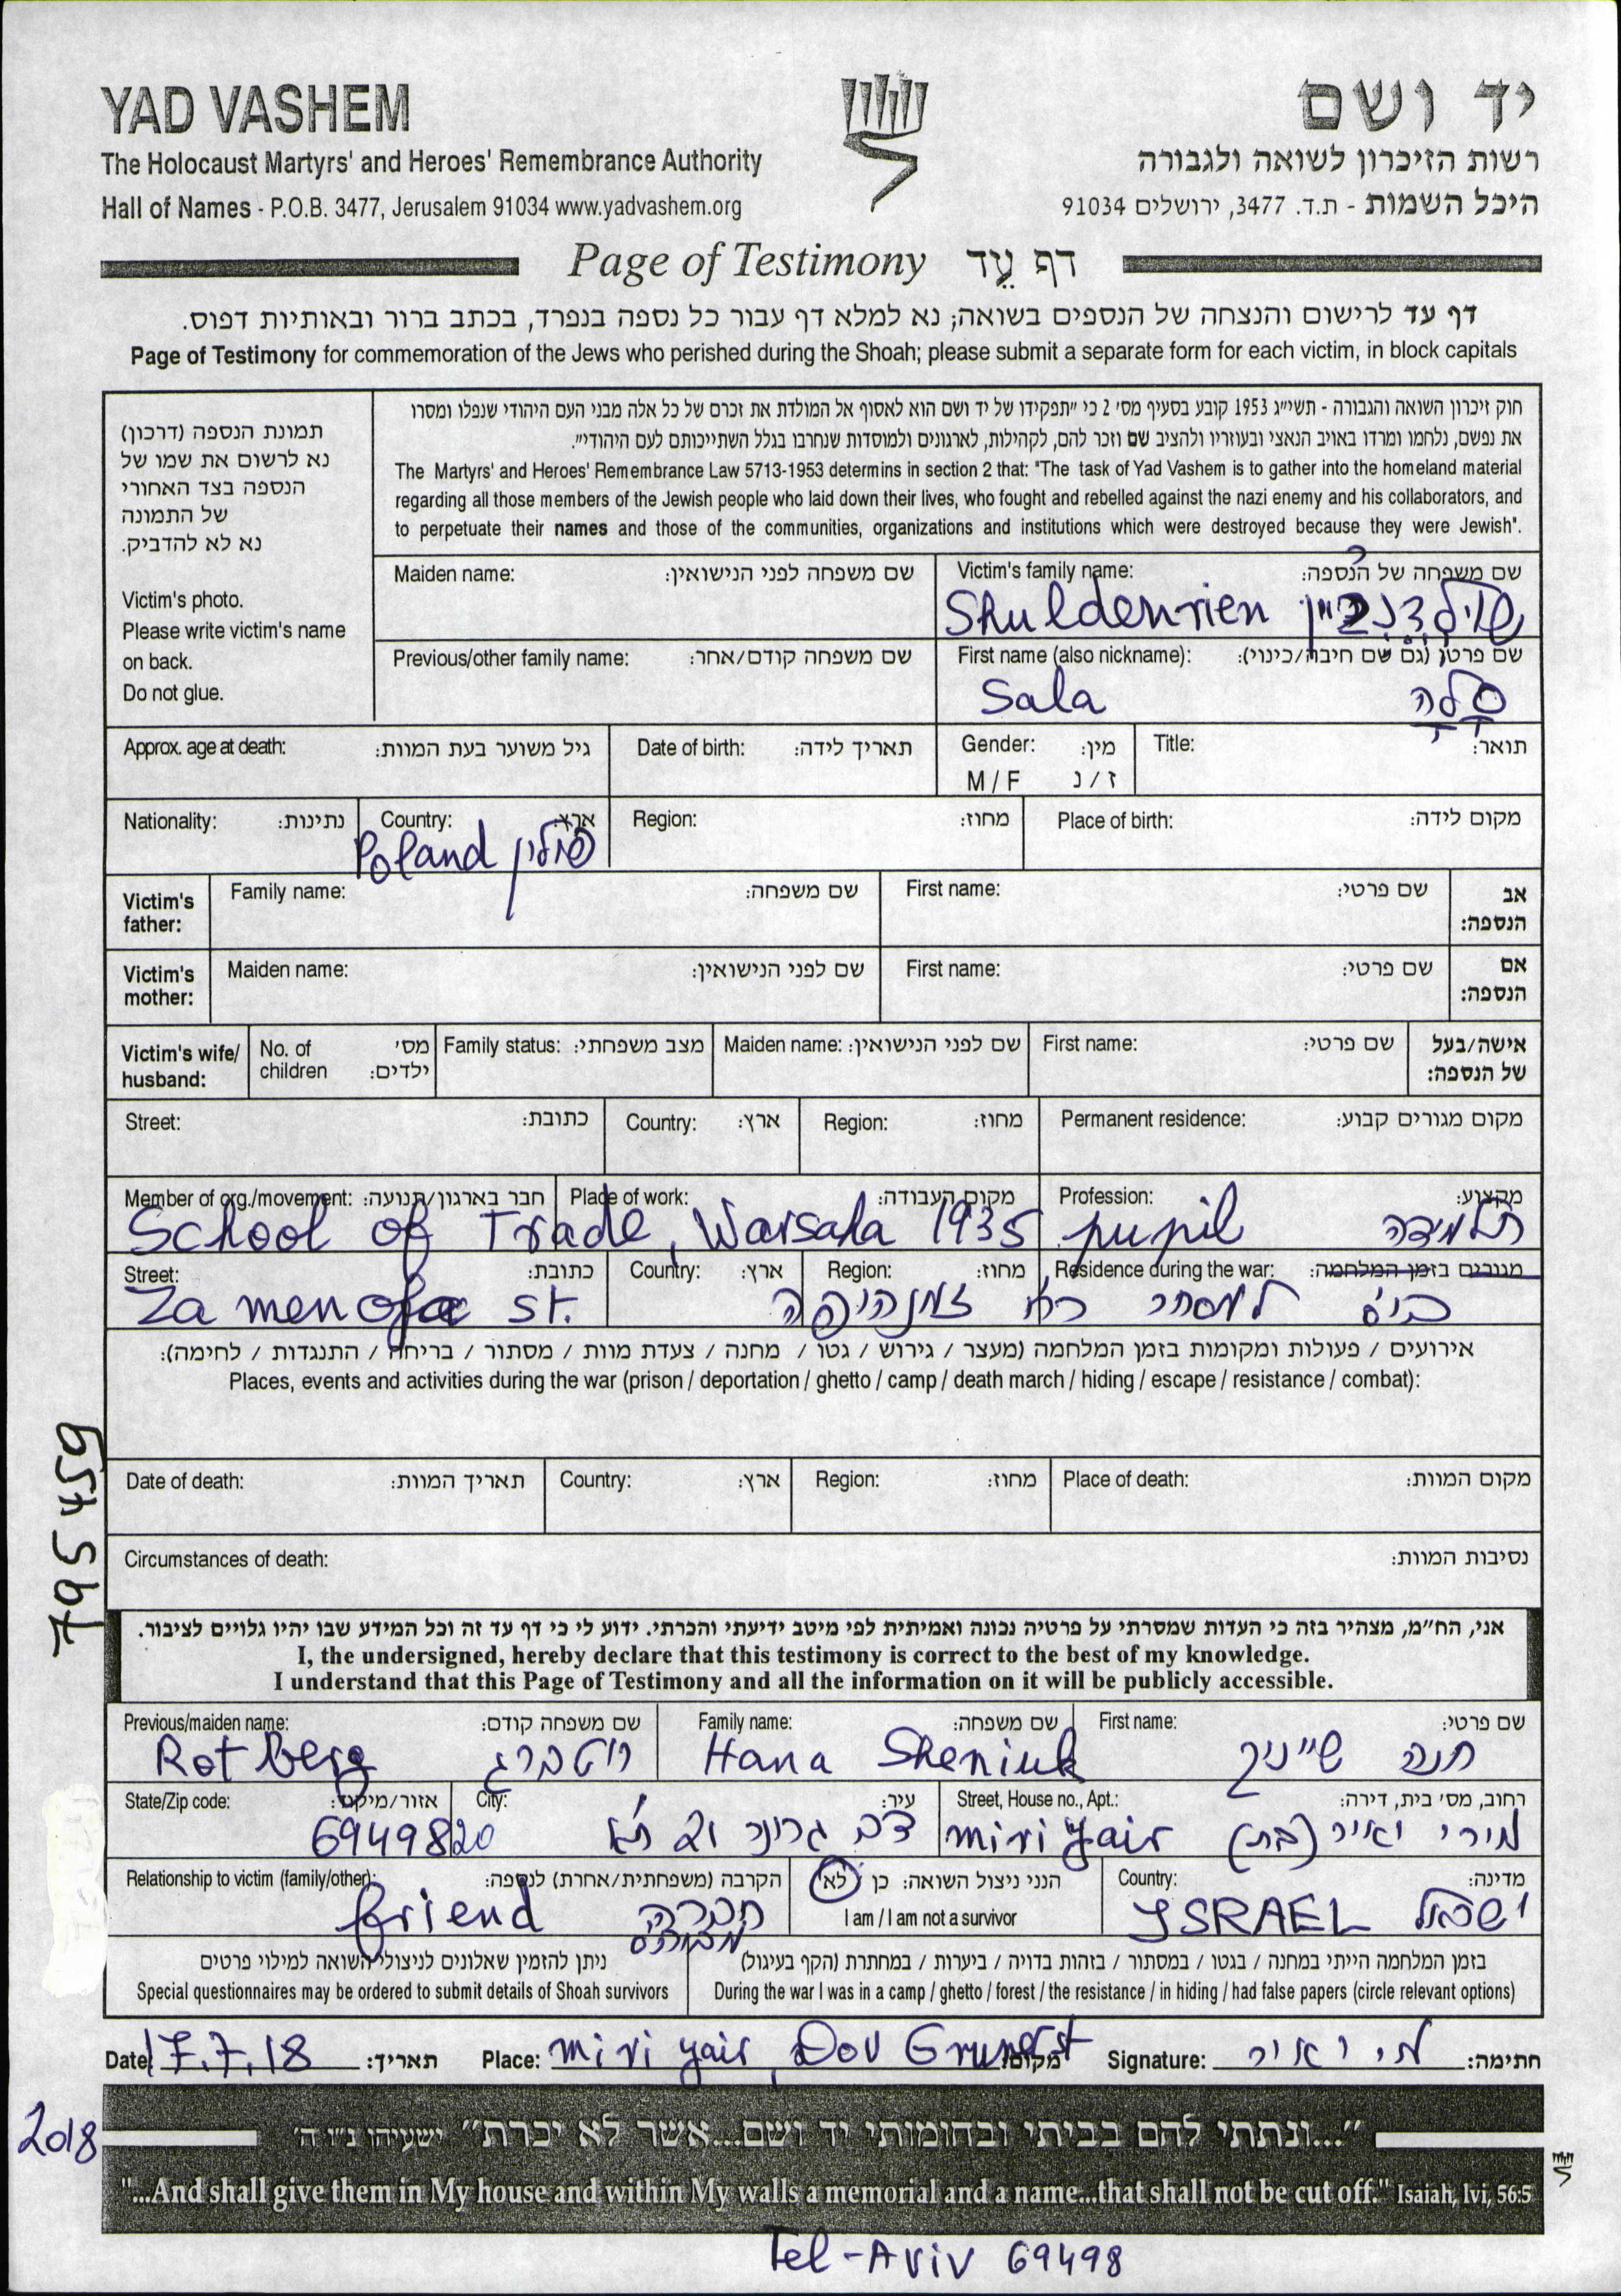 YAD VASHEM
יד ושם
The Holocaust Martyrs' and Heroes' Remembrance Authority
רשות הזיכרון לשואה ולגבורה
Hall of Names - P.O.B. 3477, Jerusalem 91034 www.yadvashem.org
היכל השמות - ת.ד. 3477, ירושלים 91034
Page of Testimony דף עֵד
דף עד לרישום והנצחה של הנספים בשואה; נא למלא דף עבור כל נספה בנפרד, בכתב ברור ובאותיות דפוס.
Page of Testimony for commemoration of the Jews who perished during the Shoah; please submit a separate form for each victim, in block capitals
תמונת הנספה (דרכון)
נא לרשום את שמו של
הנספה בצד האחורי
של התמונה
נא לא להדביק.
Victim's photo.
Please write victim's name
on back.
Do not glue.
חוק זיכרון השואה והגבורה - תשי"ג 1953 קובע בסעיף מס' 2 כי "תפקידו של יד ושם הוא לאסוף אל המולדת את זכרם של כל אלה מבני העם היהודי שנפלו ומסרו
את נפשם, נלחמו ומרדו באויב הנאצי ובעוזריו ולהציב שם וזכר להם, לקהילות, לארגונים ולמוסדות שנחרבו בגלל השתייכותם לעם היהודי".
The Martyrs' and Heroes' Remembrance Law 5713-1953 determins in section 2 that: "The task of Yad Vashem is to gather into the homeland material
regarding all those members of the Jewish people who laid down their lives, who fought and rebelled against the nazi enemy and his collaborators, and
to perpetuate their names and those of the communities, organizations and institutions which were destroyed because they were Jewish".
Maiden name: שם משפחה לפני הנישואין:
Victim's family name: שם משפחה של הנספה:
?
Shuldenrien
Previous/other family name: שם משפחה קודם/אחר:
First name (also nickname): שם פרטי (גם שם חיבה/כינוי):
Sala סלה
Approx. age at death: גיל משוער בעת המוות:
Date of birth: תאריך לידה:
Gender: מין:
M / F ז / נ
Title: תואר:
Nationality: נתינות:
Country: ארץ:
Poland פולין
Region: מחוז:
Place of birth: מקום לידה:
Victim's father:
Family name: שם משפחה:
First name: שם פרטי:
אב הנספה:
Victim's mother:
Maiden name: שם לפני הנישואין:
First name: שם פרטי:
אם הנספה:
Victim's wife/ husband:
No. of children מס' ילדים:
Family status: מצב משפחתי:
Maiden name: שם לפני הנישואין:
First name: שם פרטי:
אישה/בעל של הנספה:
Street: כתובת:
Country: ארץ:
Region: מחוז:
Permanent residence: מקום מגורים קבוע:
Member of org./movement: חבר בארגון/תנועה:
Place of work: מקום העבודה:
Profession: מקצוע:
School of Trade, Warsaha 1935 pupil תלמידה
Street: כתובת:
Country: ארץ:
Region: מחוז:
Residence during the war: מגורים בזמן המלחמה:
Zamenofa st. ביס למסחר רח' זמנהופה
אירועים / פעולות ומקומות בזמן המלחמה (מעצר / גירוש / גטו / מחנה / צעדת מוות / מסתור / בריחה / התנגדות / לחימה):
Places, events and activities during the war (prison / deportation / ghetto / camp / death march / hiding / escape / resistance / combat):
Date of death: תאריך המוות:
Country: ארץ:
Region: מחוז:
Place of death: מקום המוות:
Circumstances of death: נסיבות המוות:
אני, הח"מ, מצהיר בזה כי העדות שמסרתי על פרטיה נכונה ואמיתית לפי מיטב ידיעתי והכרתי. ידוע לי כי דף עד זה וכל המידע שבו יהיו גלויים לציבור.
I, the undersigned, hereby declare that this testimony is correct to the best of my knowledge.
I understand that this Page of Testimony and all the information on it will be publicly accessible.
Previous/maiden name: שם משפחה קודם:
Rotberg רוטברג
Family name: שם משפחה:
Hana Sheniuk
First name: שם פרטי:
חנה שייניוק
State/Zip code: אזור/מיקוד:
6949820
City: עיר:
דב גרונר 21 ת"א
Street, House no., Apt.: רחוב, מס' בית, דירה:
miri yair מירי יאיר (בת)
Relationship to victim (family/other): הקרבה (משפחתית/אחרת) לנספה:
friend חברה
הנני ניצול השואה: כן / לא
I am / I am not a survivor
Country: מדינה:
ISRAEL ישראל
ניתן להזמין שאלונים לניצולי השואה למילוי פרטים
Special questionnaires may be ordered to submit details of Shoah survivors
בזמן המלחמה הייתי במחנה / בגטו / במסתור / בזהות בדויה / ביערות / במחתרת (הקף בעיגול)
During the war I was in a camp / ghetto / forest / the resistance / in hiding / had false papers (circle relevant options)
Date: 17.7.18 תאריך:
Place: miri yair, Dov Gruner st מקום:
Signature: מירי יאיר חתימה:
2018
"...ונתתי להם בביתי ובחומותי יד ושם...אשר לא יכרת" ישעיהו נ"ו ה'
"...And shall give them in My house and within My walls a memorial and a name...that shall not be cut off." Isaiah, lvi, 56:5
Tel-Aviv 69498